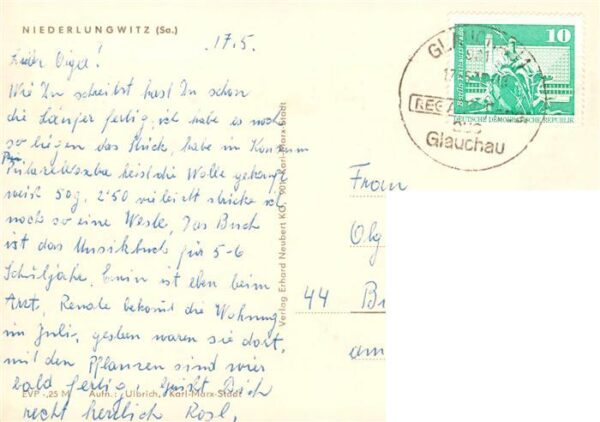 NIEDERLUNGWITZ (Sa.)
17.5.
Wie Du schreibst hast Du schon
die Läufer fertig, ich habe es noch
so liegen das Stück, habe im Konsum
heist die Wolle gekauft
weiß 50g. 2'50 vieleicht stricke ich
noch so eine Weste, Das Buch
ist das Musikbuch für 5-6
Schuljahre, ist eben beim
Arzt, Renate bekomt die Wohnung
im Juli, gestern waren sie dort,
mit den Pflanzen sind wir
bald fertig, Grüßt Dich
recht herzlich Rosl,
EVP -,25 M Aufn.: Ulbrich, Karl-Marx-Stadt
Verlag Erhard Neubert KG, 901 Karl-Marx-Stadt
10
DEUTSCHE DEMOKRATISCHE REPUBLIK
aus
Glauchau
Frau
Olg
44 Bi
am